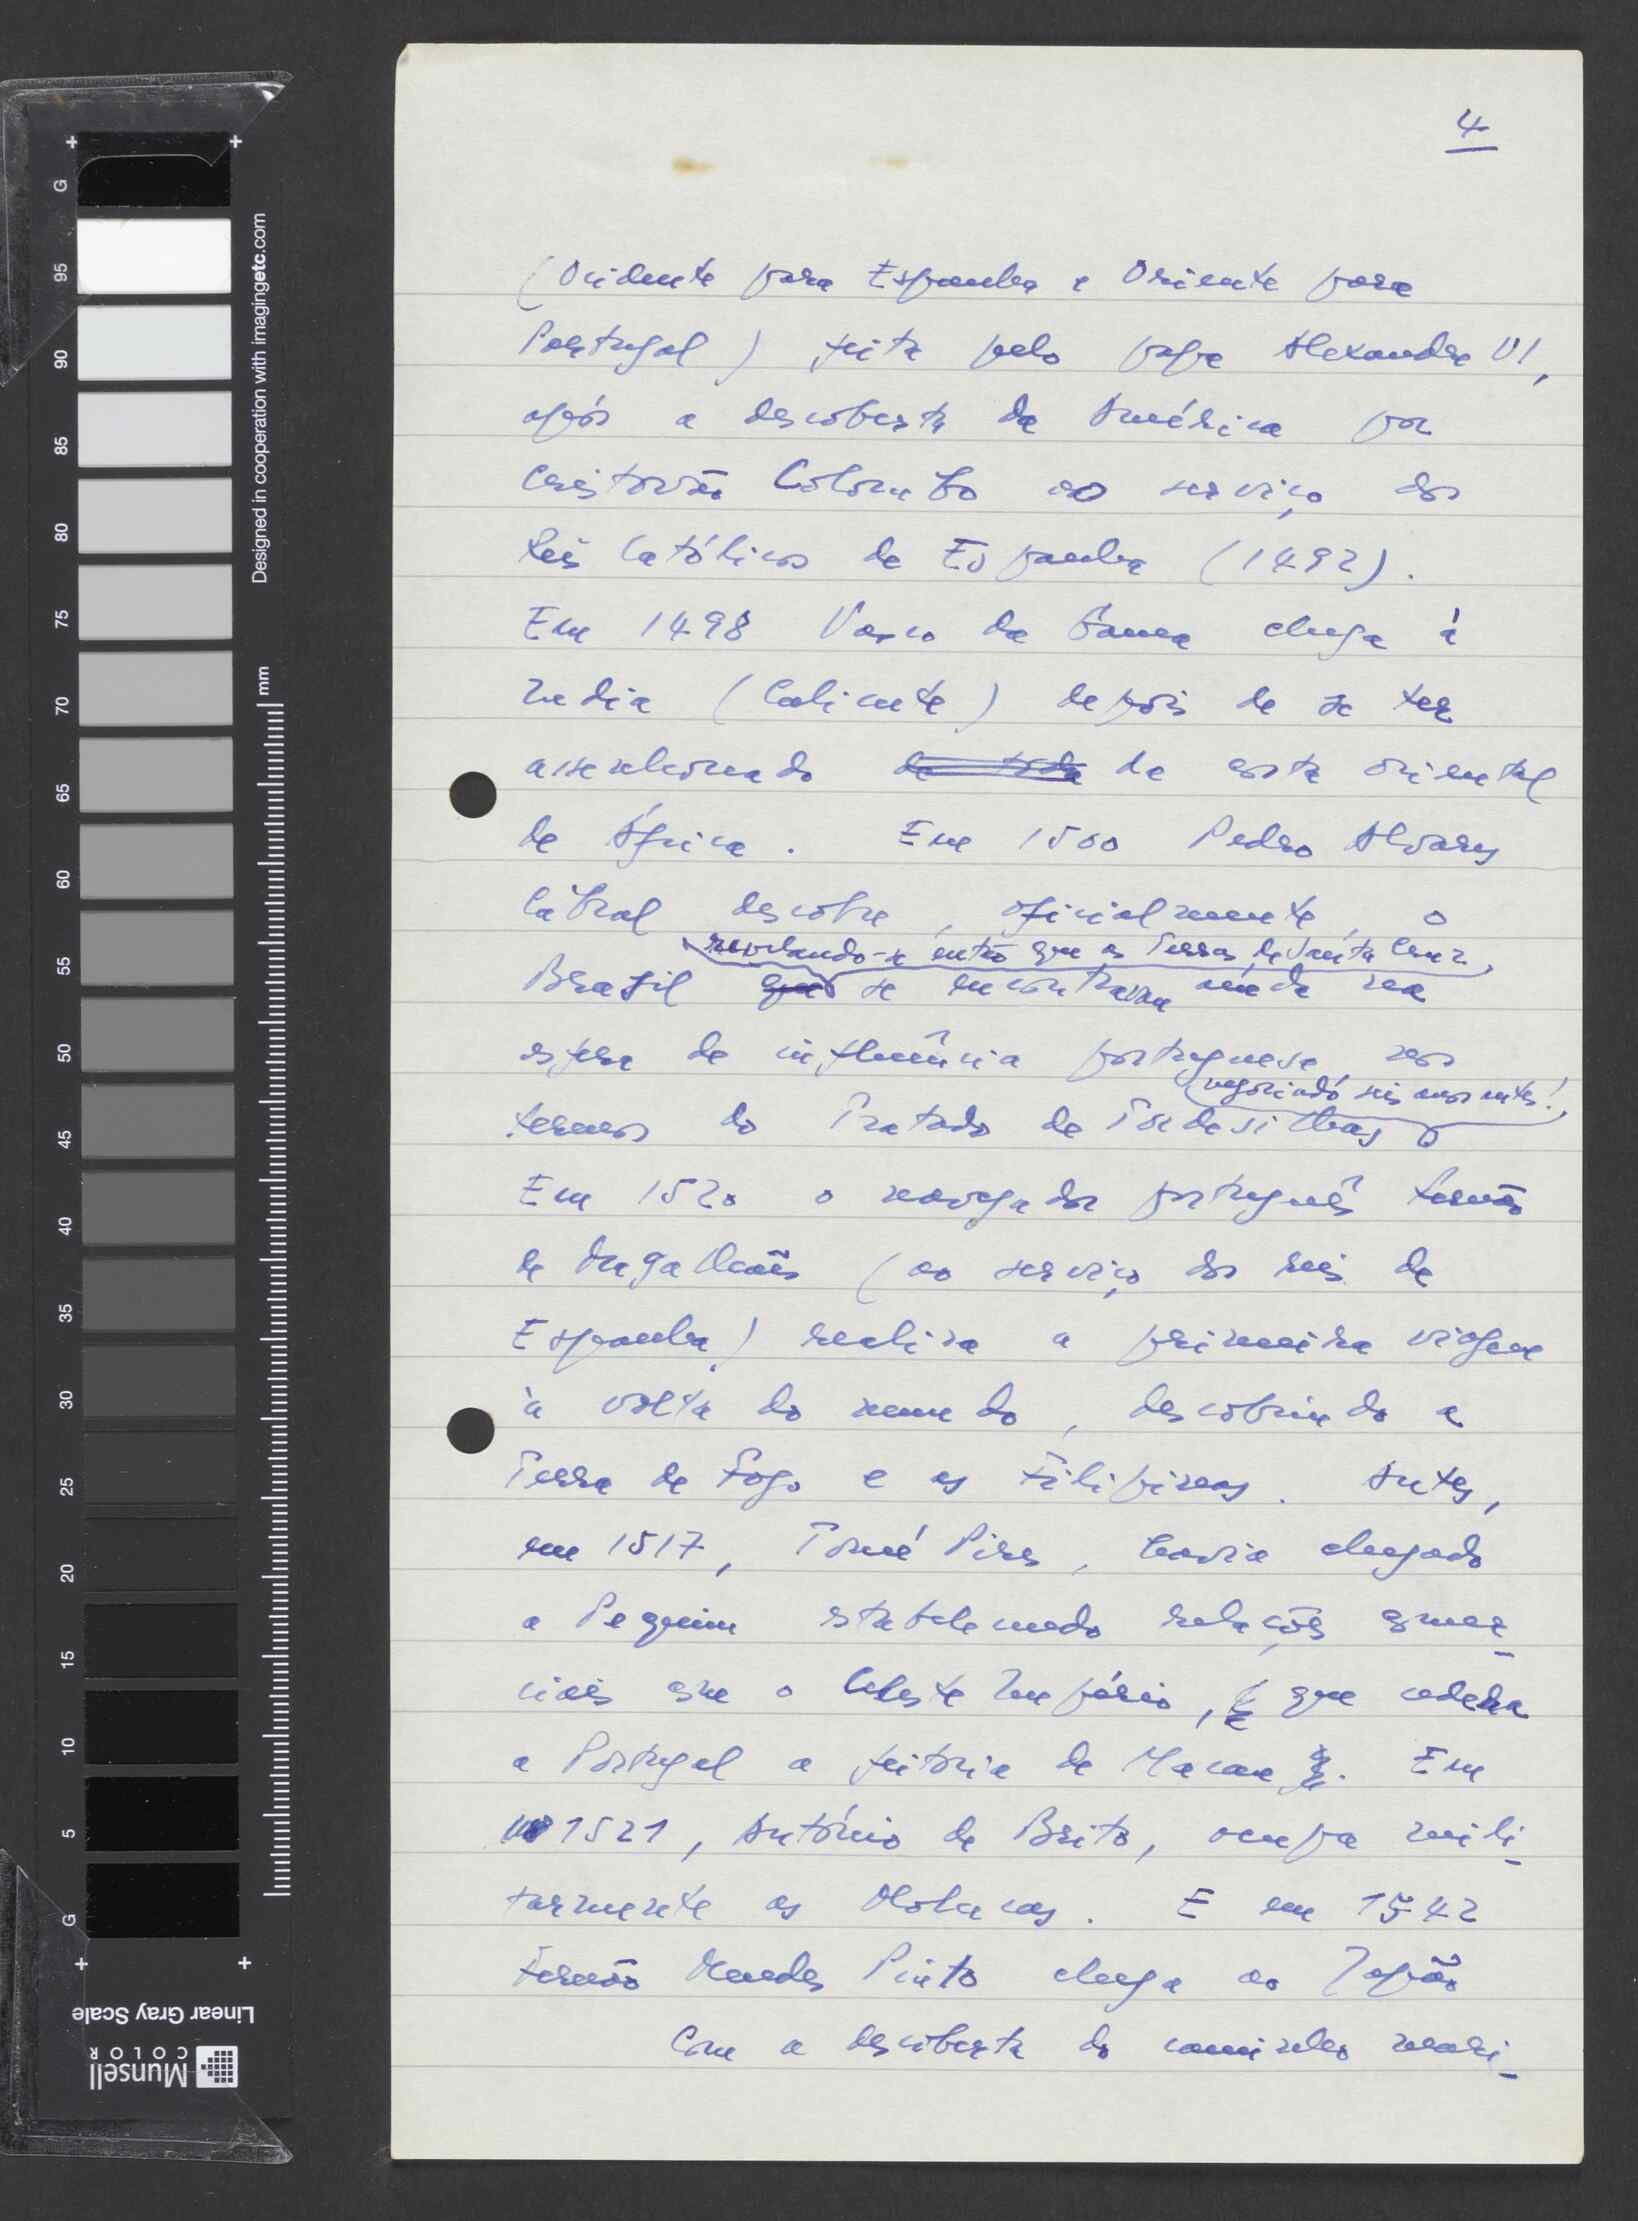 4
(Ocidente para Espanha e Oriente para
Portugal) feita pelo papa Alexandre VI,
após a descoberta da América por
Cristovão Colombo ao serviço dos
Reis Católicos de Espanha (1492).
Em 1498 Vasco da Gama chega à
India (Calicute) depois de se ter
assenhoreado de toda da costa oriental
de África. Em 1500 Pedro Alvares
Cabral descobre, oficialmente, o
revelando-se então que as Terras de Santa Cruz,
Brasil que se encontravam ainda na
esfera de influência portuguesa, nos
negociado seis anos antes!,
termos do Tratado de Tordesilhas
Em 1520 o navegador português Fernão
de Magalhães (ao serviço dos reis de
Espanha) realiza a primeira viagem
à volta do mundo, descobrindo a
Terra de Fogo e as Filipinas. Antes,
em 1517, Tomé Pires, havia chegado
a Pequim estabelecendo relações comer-
ciais com o Celeste Império, que cedera
a Portugal a feitoria de Macau. Em
1521, António de Brito, ocupa mili-
tarmente as Molucas. E em 1542
Fernão Mendes Pinto chega ao Japão
Com a descoberta do caminho marí-
Designed in cooperation with imagingetc.com
mm
G 95 90 85 80 75 70 65 60 55 50 45 40 35 30 25 20 15 10 5 G
Linear Gray Scale
Munsell
COLOR